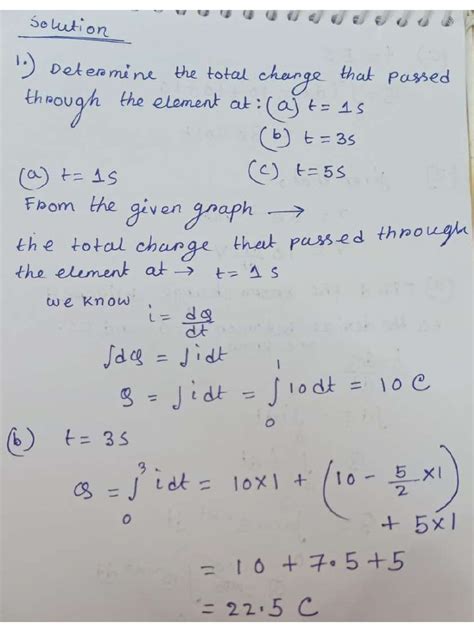 Solution
1.) Determine the total charge that passed
through the element at : (a) t = 1s
(b) t = 3s
(a) t = 1s (c) t = 5s
From the given graph →
the total charge that passed through
the element at → t = 1s
we know i = dQ/dt
∫dQ = ∫idt
Q = ∫idt = ∫₀¹ 10dt = 10 C
(b) t = 3s
Q = ∫₀³ idt = 10x1 + (10 - 5/2 x1)
+ 5x1
= 10 + 7.5 + 5
= 22.5 C